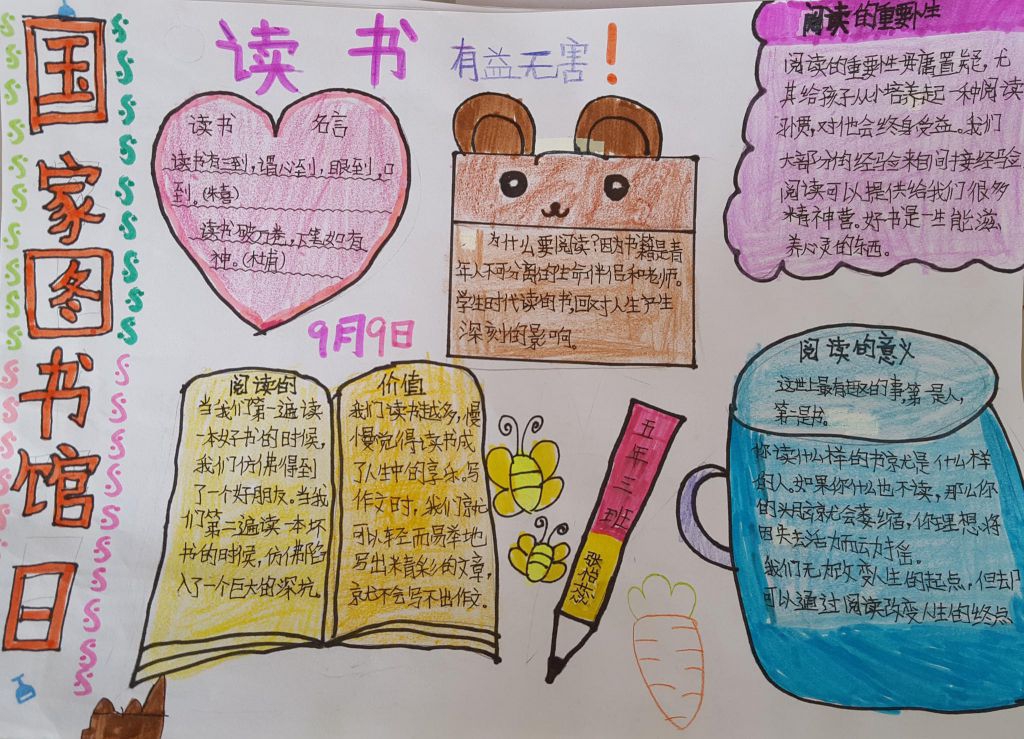 国家图书馆日
读书
有益无害！
读书 名言
读书有三到，谓心到，眼到，口
到。（朱喜）
读书破万卷，下笔如有
神。（杜甫）
9月9日
为什么要阅读？因为书籍是青
年人不可分离的生命伴侣和老师。
学生时代读的书，回对人生产生
深刻的影响。
阅读的重要性
阅读的重要性毋庸置疑，尤
其给孩子从小培养起一种阅读
习惯，对他会终身受益。我们
大部分的经验来自间接经验
阅读可以提供给我们很多
精神营。好书是一生能滋
养心灵的东西。
阅读的
当我们第一遍读
一本好书的时候，
我们仿佛得到
了一个好朋友。当我
们第二遍读一本坏
书的时候，仿佛陷
入了一个巨大的深坑。
价值
我们读书越多，慢
慢觉得读书成
了人生中的享乐。写
作文时，我们就
可以轻而易举地
写出精彩的文章，
就不会写不出作文。
五年三班
阅读的意义
这世上最有趣的事，第一是人，
第二是书。
你读什么样的书就是什么样
的人。如果你什么也不读，那么你
的头脑就会萎缩，你理想将
因失去活力而动摇。
我们无力改变人生的起点，但去
可以通过阅读改变人生的终点